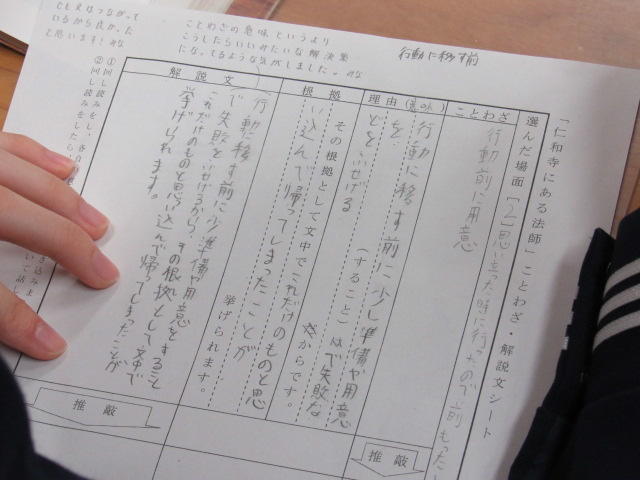 「仁和寺にある法師」ことわざ・解説文シート
選んだ場面 [2] 思い立った時に行ったので前もった
ことわざ
行動前に用意
理由(意の外)
行動に移す前に少し準備や用意
を
などをふせげる (すること)はで失敗な
からです。
根拠
その根拠として文中でこれだけのものと思
い込んで帰ってしまったことが
挙げられます。
解説文
行動に移す前に少し準備や用意をすること
で失敗をふせげるから、その根拠として文中で
これだけのものと思い込んで帰ってしまったことが
挙げられます。
推敲
推敲
行動に移す前
ことわざの意味というより
こうしたらいいみたいな解決策
になってるような気がしました。みな
いるから良かった
と思います! みな
①回し読みをし、各自の
②回し読みをしたら